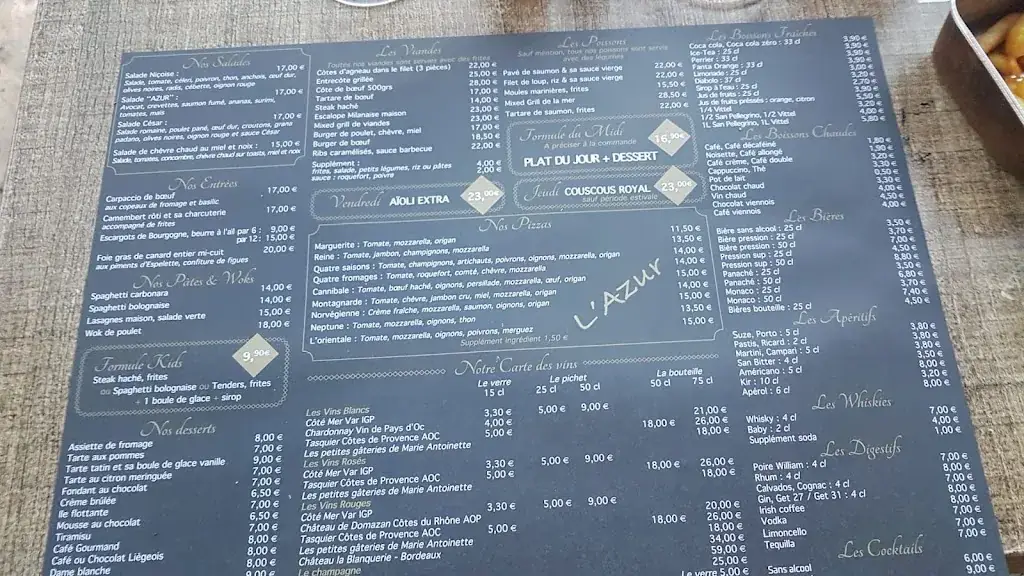 Nos Salades
Salade Niçoise : 17,00 €
Salade, tomate, céleri, poivron, thon, anchois, œuf dur,
olives noires, radis, cébette, oignon rouge
Salade "AZUR" : 17,00 €
Avocat, crevettes, saumon fumé, ananas, surimi,
tomates, maïs
Salade César : 17,00 €
Salade romaine, poulet pané, œuf dur, croutons, grana
padano, olives noires, oignon rouge et sauce César
Salade de chèvre chaud au miel et noix : 15,00 €
Salade, tomates, concombre, chèvre chaud sur toasts, miel et noix
Nos Entrées
Carpaccio de bœuf 17,00 €
aux copeaux de fromage et basilic
Camembert rôti et sa charcuterie 17,00 €
accompagné de frites
Escargots de Bourgogne, beurre à l'ail par 6 : 9,00 €
par 12 : 15,00 €
Foie gras de canard entier mi-cuit 20,00 €
aux piments d'Espelette, confiture de figues
Nos Pâtes & Woks
Spaghetti carbonara 14,00 €
Spaghetti bolognaise 14,00 €
Lasagnes maison, salade verte 15,00 €
Wok de poulet 18,00 €
Formule Kids 9,90€
Steak haché, frites
ou Spaghetti bolognaise ou Tenders, frites
+ 1 boule de glace + sirop
Nos desserts
Assiette de fromage 8,00 €
Tarte aux pommes 7,00 €
Tarte tatin et sa boule de glace vanille 9,00 €
Tarte au citron meringuée 7,00 €
Fondant au chocolat 7,00 €
Crème brûlée 6,50 €
Ile flottante 7,00 €
Mousse au chocolat 6,50 €
Tiramisu 7,00 €
Café Gourmand 8,00 €
Café ou Chocolat Liégeois 8,00 €
Dame blanche 8,00 €
Les Viandes
Toutes nos viandes sont servies avec des frites
Côtes d'agneau dans le filet (3 pièces) 22,00 €
Entrecôte grillée 25,00 €
Côte de bœuf 500grs 28,00 €
Tartare de bœuf 17,00 €
Steak haché 14,00 €
Escalope Milanaise maison 23,00 €
Mixed grill de viandes 23,00 €
Burger de poulet, chèvre, miel 17,00 €
Burger de bœuf 18,50 €
Ribs caramélisés, sauce barbecue 22,00 €
Supplément :
frites, salade, petits légumes, riz ou pâtes 4,00 €
sauce : roquefort, poivre 2,00 €
Vendredi AÏOLI EXTRA 23,00€
Les Poissons
Sauf mention, tous nos poissons sont servis
avec des légumes
Pavé de saumon & sa sauce vierge 22,00 €
Filet de loup, riz & sa sauce vierge 22,00 €
Moules marinières, frites 15,50 €
Mixed Grill de la mer 28,50 €
Tartare de saumon, frites 22,00 €
Formule du Midi 16,90€
A préciser à la commande
PLAT DU JOUR + DESSERT
Jeudi COUSCOUS ROYAL 23,00€
sauf période estivale
Nos Pizzas
Marguerite : Tomate, mozzarella, origan 11,50 €
Reine : Tomate, jambon, champignons, mozzarella 13,50 €
Quatre saisons : Tomate, champignons, artichauts, poivrons, oignons, mozzarella, origan 14,00 €
Quatre fromages : Tomate, roquefort, comté, chèvre, mozzarella 14,00 €
Cannibale : Tomate, bœuf haché, oignons, persillade, mozzarella, œuf, origan 15,00 €
Montagnarde : Tomate, chèvre, jambon cru, miel, mozzarella, origan 14,00 €
Norvégienne : Crème fraîche, mozzarella, saumon, oignons, origan 15,00 €
Neptune : Tomate, mozzarella, oignons, thon 13,50 €
L'orientale : Tomate, mozzarella, oignons, poivrons, merguez 15,00 €
Supplément ingrédient 1,50 €
L'Azur
Notre Carte des vins
Le verre Le pichet La bouteille
15 cl 25 cl 50 cl 50 cl 75 cl
Les Vins Blancs
Côté Mer Var IGP 3,30 € 5,00 € 9,00 €
Chardonnay Vin de Pays d'Oc 4,00 € 21,00 €
Tasquier Côtes de Provence AOC 5,00 € 18,00 € 26,00 €
Les petites gâteries de Marie Antoinette 18,00 €
Les Vins Rosés
Côté Mer Var IGP 3,30 € 5,00 € 9,00 €
Tasquier Côtes de Provence AOC 5,00 € 18,00 € 26,00 €
Les petites gâteries de Marie Antoinette 18,00 €
Les Vins Rouges
Côté Mer Var IGP 3,30 € 5,00 € 9,00 €
Château de Domazan Côtes du Rhône AOP 20,00 €
Tasquier Côtes de Provence AOC 5,00 € 18,00 € 26,00 €
Les petites gâteries de Marie Antoinette 18,00 €
Château la Blanquerie - Bordeaux 34,00 €
59,00 €
25,00 €
Le champagne
Le verre 5,00 €
Les Boissons Fraîches
Coca cola, Coca cola zéro : 33 cl 3,90 €
Ice-Tea : 25 cl 3,90 €
Perrier : 33 cl
Fanta Orange : 33 cl
Limonade : 25 cl
Diabolo : 37 cl
Sirop à l'eau : 25 cl
Jus de fruits : 25 cl
Jus de fruits pressés : orange, citron
1/4 Vittel
1/2 San Pellegrino, 1/2 Vittel
1L San Pellegrino, 1L Vittel 5,80 €
Les Boissons Chaudes
Café, Café décaféiné 1,80 €
Noisette, Café allongé 1,90 €
Café crème, Café double 3,20 €
Cappuccino, Thé 3,30 €
Pot de lait 0,50 €
Chocolat chaud 3,30 €
Vin chaud 4,00 €
Chocolat viennois 4,50 €
Café viennois 4,00 €
Les Bières
Bière sans alcool : 25 cl 3,50 €
Bière pression : 25 cl 3,70 €
Bière pression : 50 cl 7,00 €
Pression sup : 25 cl 4,50 €
Pression sup : 50 cl 8,80 €
Panaché : 25 cl 3,50 €
Panaché : 50 cl 6,80 €
Monaco : 25 cl 3,70 €
Monaco : 50 cl 7,40 €
Bières bouteille : 25 cl 4,50 €
Les Apéritifs
Suze, Porto : 5 cl 3,80 €
Pastis, Ricard : 2 cl 3,80 €
Martini, Campari : 5 cl 3,80 €
San Bitter : 4 cl 3,50 €
Américano : 5 cl 8,00 €
Kir : 10 cl 3,20 €
Apérol : 6 cl 8,00 €
Les Whiskies
Whisky : 4 cl 7,00 €
Baby : 2 cl 4,00 €
Supplément soda 1,00 €
Les Digestifs
Poire William : 4 cl 7,00 €
Rhum : 4 cl 8,00 €
Calvados, Cognac : 4 cl 7,00 €
Gin, Get 27 / Get 31 : 4 cl 8,00 €
Irish coffee 8,00 €
Vodka 7,00 €
Limoncello 7,00 €
Tequilla 7,00 €
Les Cocktails
Sans alcool 6,00 €
9,00 €